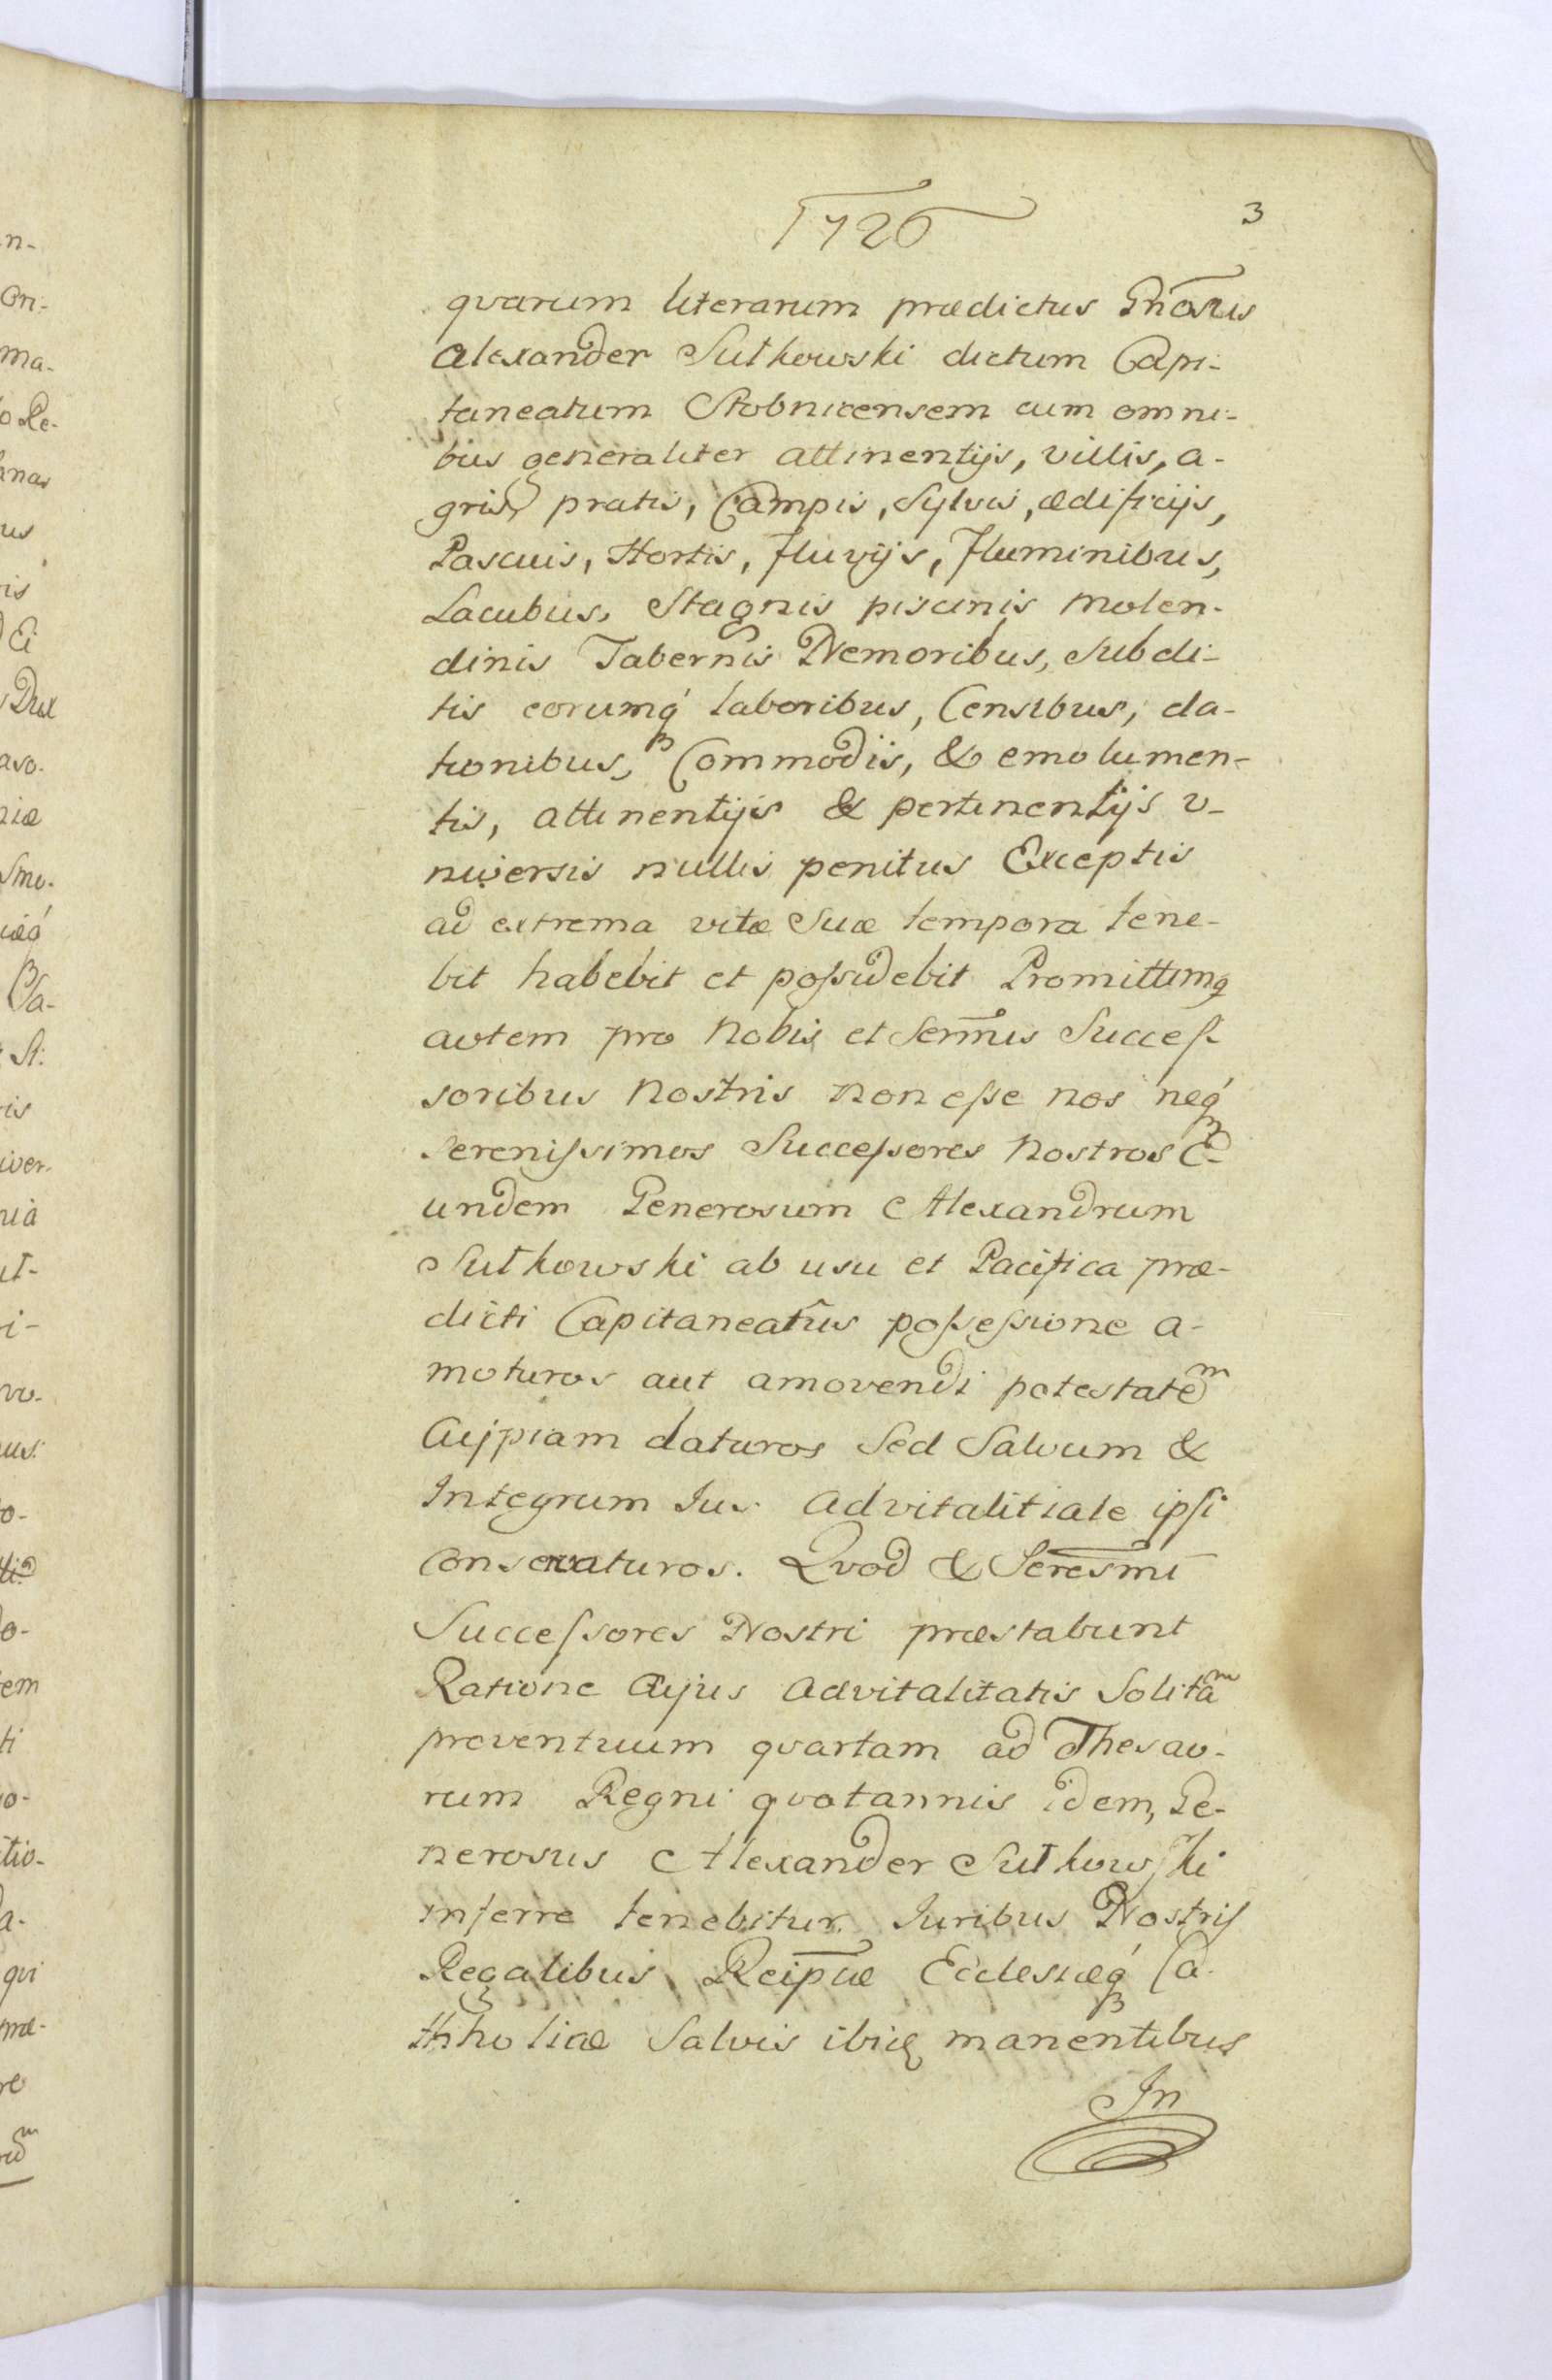 1726
3
quarum literarum prædictus Gnosus
Alexander Sułkowski dictum Capi-
taneatum Stobnicensem cum omni-
bus generaliter attinentijs, villis, a-
gris, pratis, Campis, Sylvis, ædificijs,
Pascuis, Hortis, fluvijs, fluminibus,
Lacubus, Stagnis piscinis molen-
dinis Tabernis Nemoribus, Subdi-
tis eorumq́ laboribus, Censibus, da-
tionibus, Commodis, & emolumen-
tis, attinentijs & pertinentijs v-
niversis nullis penitus Exceptis
ad extrema vitæ Suæ tempora tene-
bit habebit et poſsidebit Promittimq
autem pro Nobis et Sermis Succeſ-
soribus Nostris non eſse nos neq́
Sereniſsimos Succeſsores Nostros E-
undem Generosum Alexandrum
Sułkowski ab usu et Pacifica præ-
dicti Capitaneatûs poſseſsione a-
moturos aut amovendi potestatem
Cujpiam daturos Sed Salvum &
Integrum Ius Advitalitiale ipſi
conservaturos. Qvod & Seresmi
Succeſsores Nostri præstabunt
Ratione Cujus Advitalitatis Solitam
proventuum qvartam ad Thesau-
rum Regni qvotannis idem, Ge-
nerosus Alexander Sułkowſki
inferre tenebitur. Iuribus Nostriſ
Regalibus Reipuæ Ecclesiæq́ Ca-
thholicæ Salvis ibiq manentibus
In
n-
on-
ma-
o Re-
nas
us
vis
Ei
Dux
avo-
niæ
Smo-
iæq́
Ca-
St:
ris
iver-
nia
ut-
i-
vo-
us:
o-
o-
em
ti
o-
tio-
a-
qvi
præ-
re